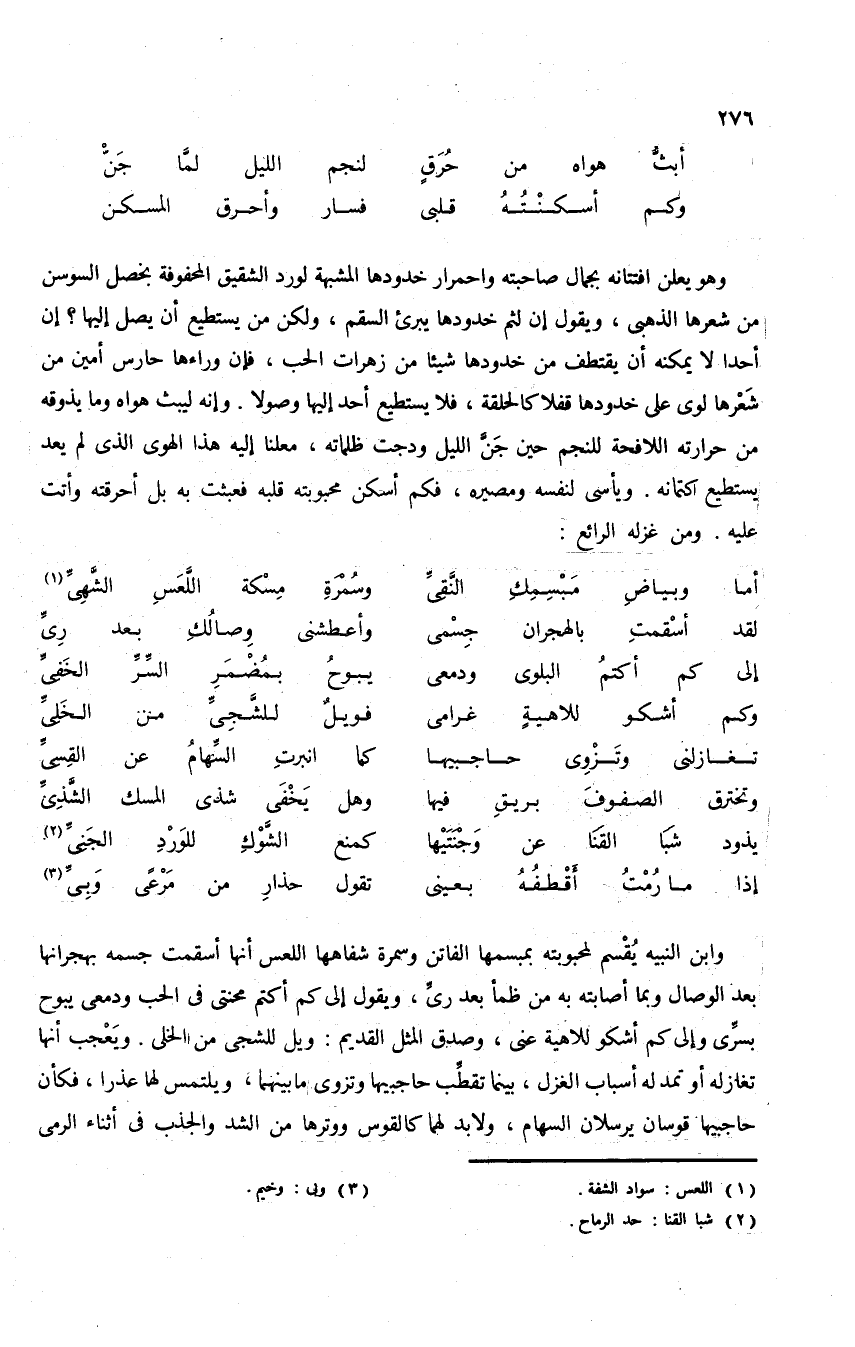 ٢٧٦
أبثُّ هواه من حُرَقٍ لنجم الليل لمَّا جَنّْ
وكـم أسـكـنْـتُـهُ قـلبى فسـار وأحـرق المـسـكـن
وهو يعلن افتتانه بجمال صاحبته واحمرار خدودها المشبهة لورد الشقيق المحفوفة بخصل السوسن
من شعرها الذهبى ، ويقول إن لثم خدودها يبرئ السقم ، ولكن من يستطيع أن يصل إليها ؟ إن
أحدا لا يمكنه أن يقتطف من خدودها شيئا من زهرات الحب ، فإن وراءها حارس أمين من
شَعْرها لوى على خدودها قفلا كالحلقة ، فلا يستطيع أحد إليها وصولا . وإنه ليبث هواه وما يذوقه
من حرارته اللافحة للنجم حين جَنَّ الليل ودجت ظلماته ، معلنا إليه هذا الهوى الذى لم يعد
يستطيع اكتمانه . ويأسى لنفسه ومصيره ، فكم أسكن محبوبته قلبه فعبثت به بل أحرقته وأتت
عليه . ومن غزله الرائع :
أمـا وبـيـاضِ مَبْسِـمِـكِ النَّقِىِّ وسُمْرَةِ مِسْكة اللَّعَسِ الشَّهِىِّ(١)
لقد أسْقمتِ بالهجران جِسْمى وأعـطشنى وِصـالُكِ بـعد رِىِّ
إلى كم أكتمُ البلوى ودمعى يـبـوحُ بـمُضْـمَـرِ السِّرِّ الخَفِىِّ
وكـم أشـكـو للاهـيـةٍ غـرامى فـويـلٌ لـلشَّـجِىِّ مـن الـخَلِىِّ
تـغـازلنى وتَـزْوِى حـاجـبـيهـا كما انبرتِ السِّهامُ عن القِسِىِّ
وتخترق الصفـوفَ بـريـقِ فيها وهل يَخْفَى شذى المسك الشَّذِىِّ
يذود شَبَا القَنَا عن وَجْنَتَيْها كمنع الشَّوْكِ للوَرْدِ الجَنِىِّ(٢)
إذا مـا رُمْتُ أَقْـطـفُـهُ بـعـينى تقول حذارِ من مَرْعًى وَبِىِّ(٣)
وابن النبيه يُقْسم لمحبوبته بمبسمها الفاتن وسمرة شفاهها اللعس أنها أسقمت جسمه بهجرانها
بعد الوصال وبما أصابته به من ظمأ بعد رىٍّ ، ويقول إلى كم أكتم محنتى فى الحب ودمعى يبوح
بسرِّى وإلى كم أشكو للاهية عنى ، وصدق المثل القديم : ويل للشجى من الخلى . ويَعْجب أنها
تغازله أو تمد له أسباب الغزل ، بينما تقطِّب حاجبيها وتزوى مابينهما ، ويلتمس لها عذرا ، فكأن
حاجبيها قوسان يرسلان السهام ، ولابد لهما كالقوس ووترها من الشد والجذب فى أثناء الرمى
(١) اللعس : سواد الشفة . (٣) وبى : وخيم .
(٢) شبا القنا : حد الرماح .